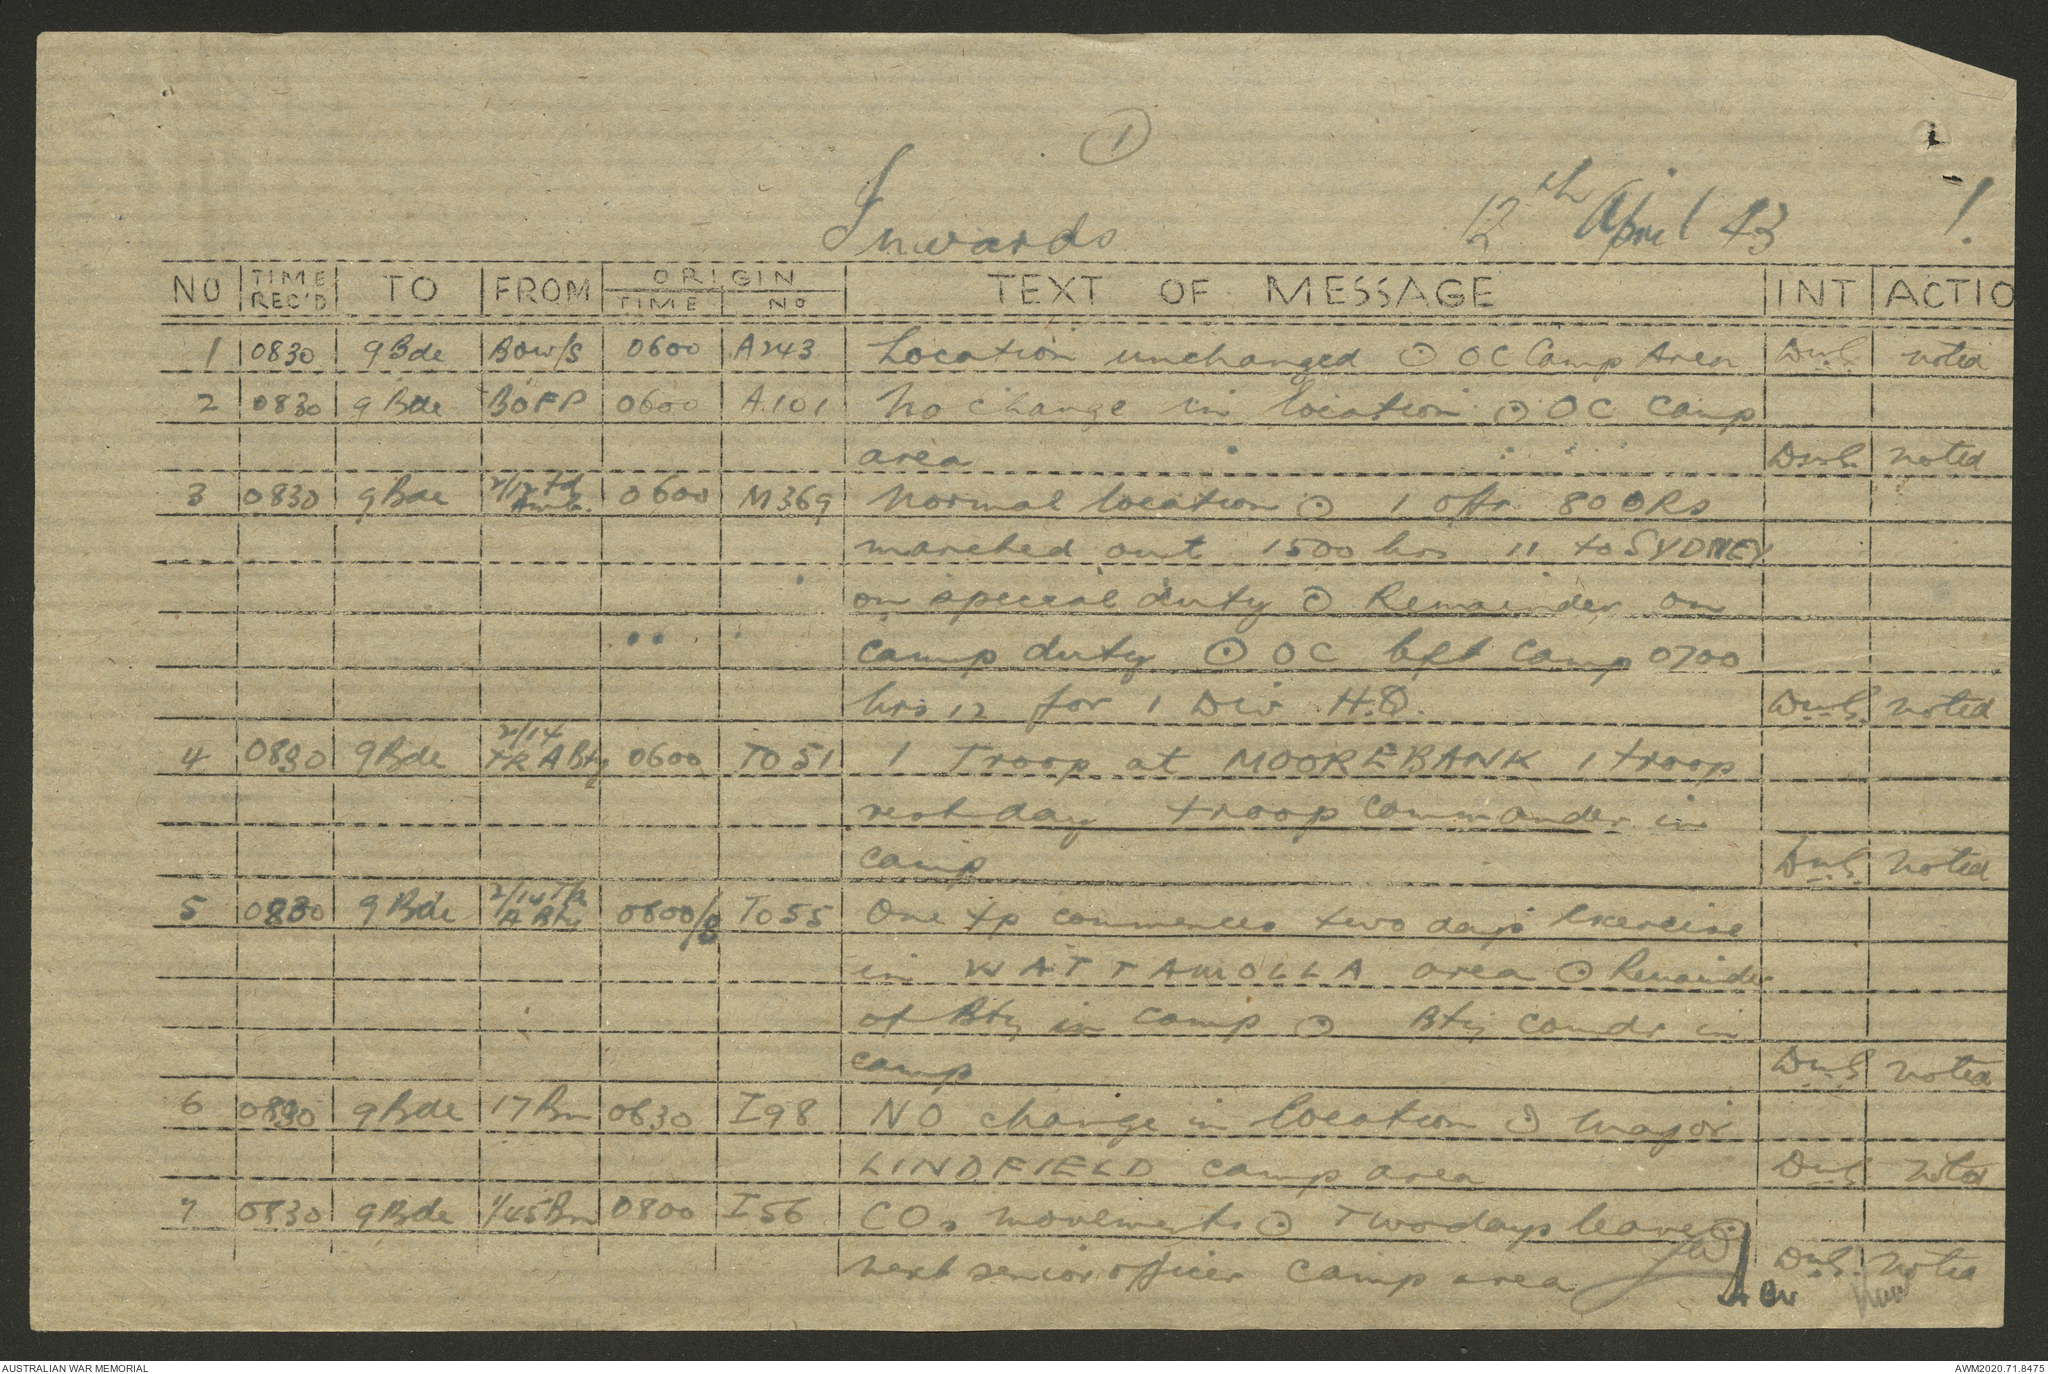 1
Inwards
12th April 43
1.
NO | TIME REC'D | TO | FROM | ORIGIN TIME | ORIGIN No | TEXT OF MESSAGE | INT | ACTIO
1 | 0830 | 9 Bde | BOW/S | 0600 | A243 | Location unchanged ⊙ OC Camp Area | DWS. | noted
2 | 0830 | 9 Bde | BOFP | 0600 | A.101 | No change in location ⊙ OC Camp
area | DWS. | noted
3 | 0830 | 9 Bde | 2/12 Fd Amb. | 0600 | M369 | Normal location ⊙ 1 offr 80 ORs
marched out 1500 hrs 11 to SYDNEY
on special duty ⊙ Remainder on
camp duty ⊙ OC left camp 0700
hrs 12 for 1 Div H.Q. | DWS. | noted
4 | 0830 | 9 Bde | 2/14 A Bty | 0600 | TO51 | 1 Troop at MOOREBANK 1 troop
rest day troop commander in
camp | DWS. | noted
5 | 0830 | 9 Bde | 2/14 A Bty | 0600/8 | TO55 | One tp commences two days exercise
in WATTAMOLLA area ⊙ Remainder
of Bty in camp ⊙ Bty comdr in
camp | DWS | noted
6 | 0830 | 9 Bde | 17 Bn | 0630 | I98 | NO change in location ⊙ Major
LINDFIELD camp area | DWS | noted
7 | 0830 | 9 Bde | 1/45 Bn | 0800 | I56 | COs movements ⊙ Two days leave ⊙
next senior officer camp area | DWS. | noted
AUSTRALIAN WAR MEMORIAL
AWM2020.71.8475